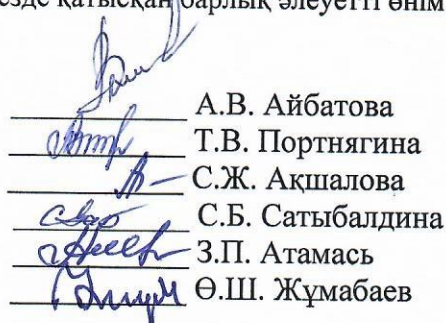 езде қатысқан барлық әлеуетті өнім
А.В. Айбатова
Т.В. Портнягина
С.Ж. Ақшалова
С.Б. Сатыбалдина
З.П. Атамась
Ө.Ш. Жұмабаев